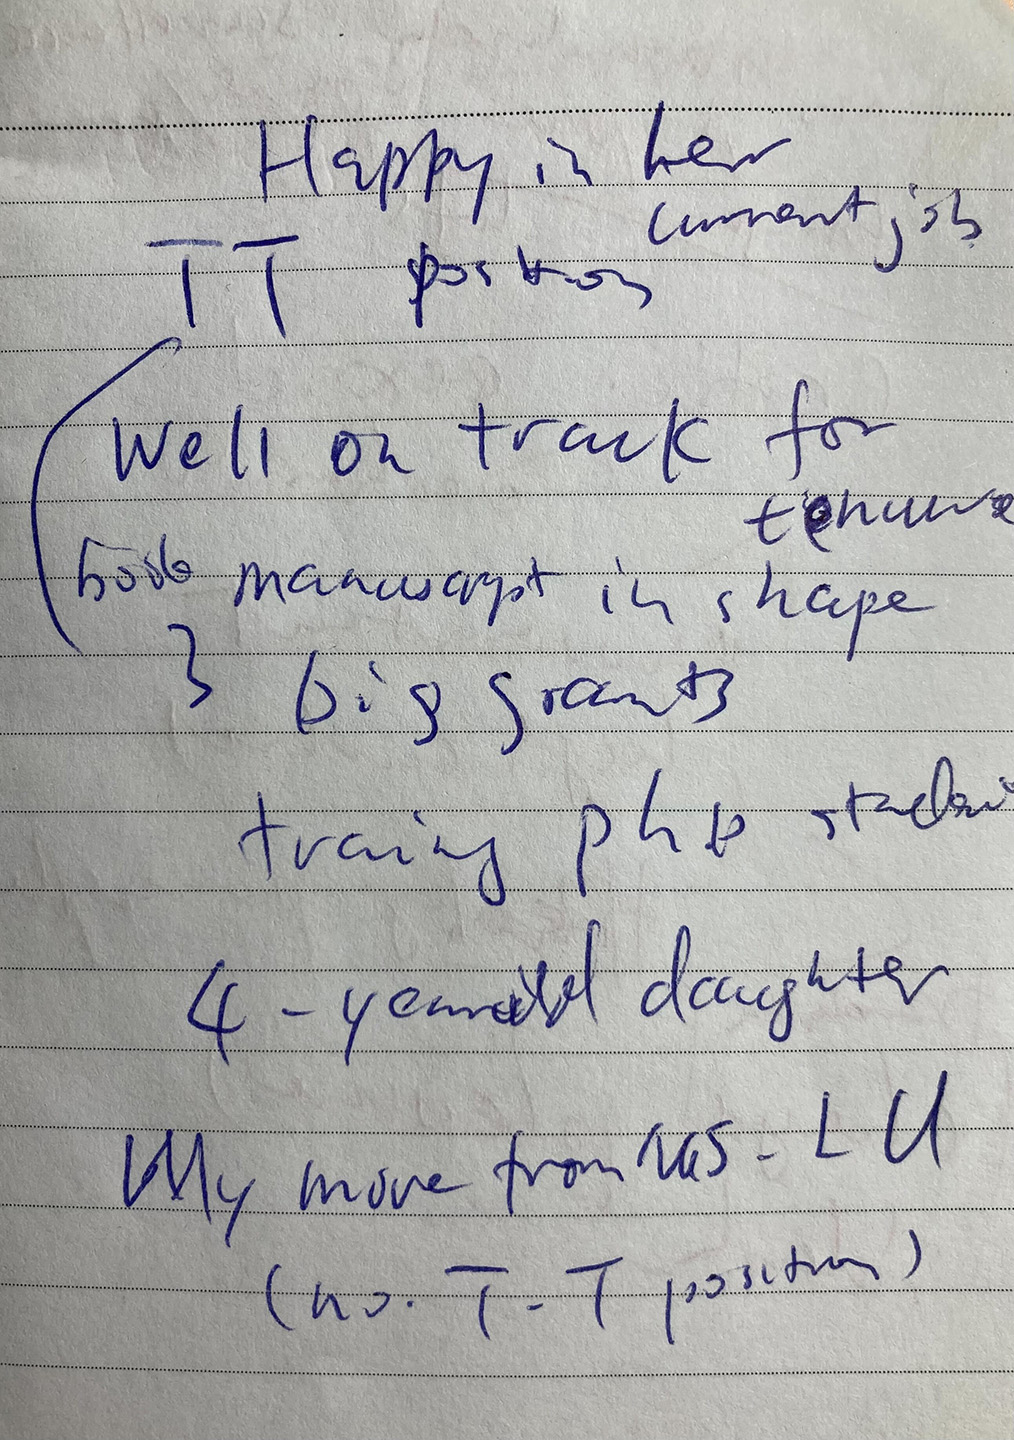 Happy in her
current job
TT position
Well on track for
tenure
book manuscript in shape
3 big grants
traing PhD
4-year old daughter
My move from US - LU
(no. T-T position)